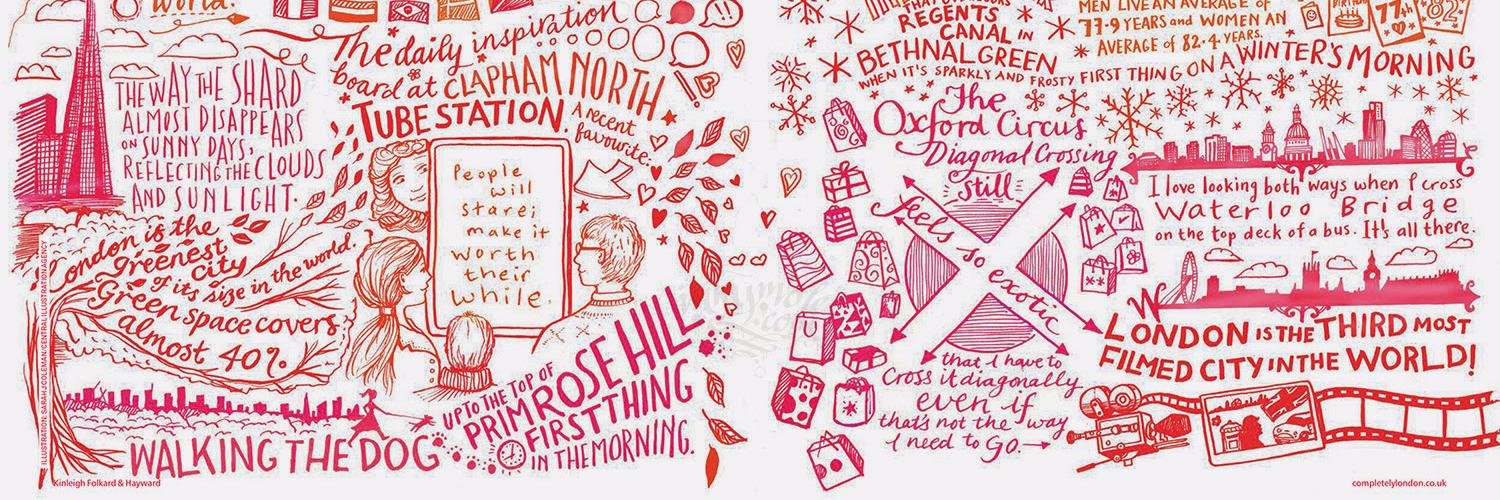 World.
THE WAY THE SHARD
ALMOST DISAPPEARS
ON SUNNY DAYS,
REFLECTING THE CLOUDS
AND SUNLIGHT.
The daily inspiration
board at CLAPHAM NORTH
TUBE STATION.
A recent
favourite:
People
will
stare;
make it
worth
their
while.
London is the
greenest
city
of its size in the world.
Green space covers
almost 40%.
WALKING THE DOG
UP TO THE TOP OF
PRIMROSE HILL
FIRST THING
IN THE MORNING.
ILLUSTRATION: SARAH J COLEMAN/CENTRAL ILLUSTRATION AGENCY
Kinleigh Folkard & Hayward
REGENTS
CANAL IN
BETHNAL GREEN
WHEN IT'S SPARKLY AND FROSTY FIRST THING ON A WINTER'S MORNING
MEN LIVE AN AVERAGE OF
77.9 YEARS and WOMEN AN
AVERAGE OF 82.4 YEARS.
BIRTHDAY
77th
82
The
Oxford Circus
Diagonal Crossing
still
feels so exotic
that I have to
Cross it diagonally
even if
that's not the way
I need to Go.
I love looking both ways when I cross
Waterloo Bridge
on the top deck of a bus. It's all there.
LONDON IS THE THIRD MOST
FILMED CITY IN THE WORLD!
completelylondon.co.uk